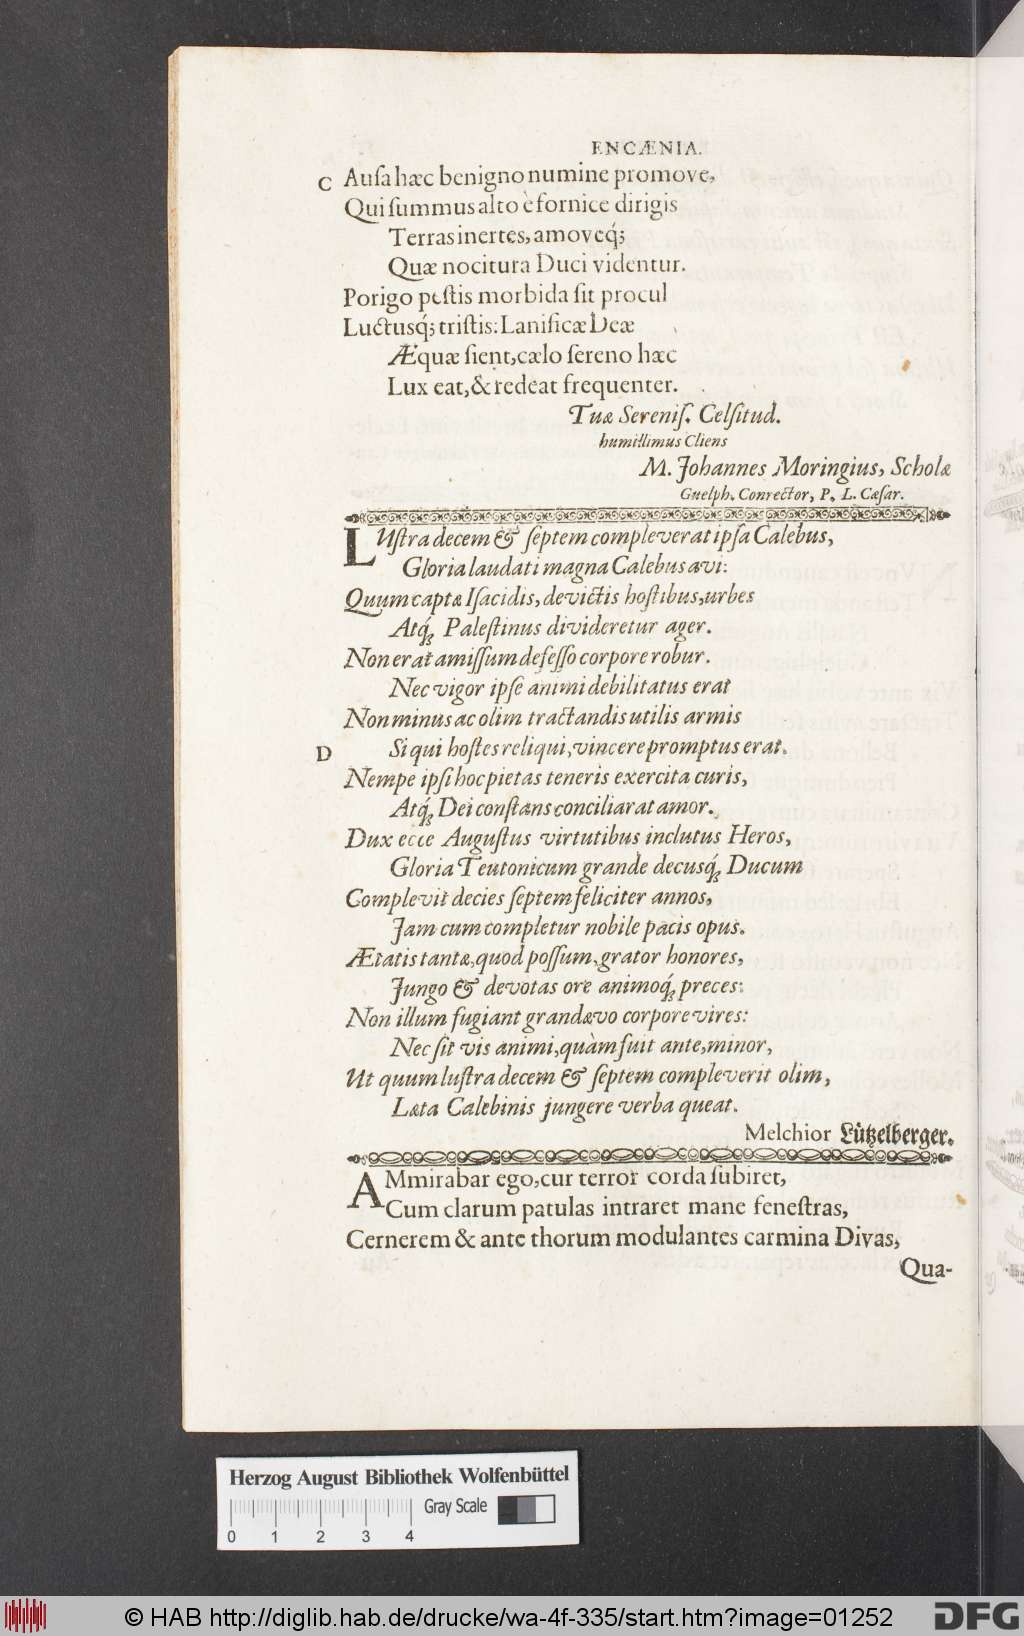 ENCÆNIA.
C Auſa hæc benigno numine promove,
Qui ſummus alto è fornice dirigis
Terras inertes, amoveq́;
Quæ nocitura Duci videntur.
Porigo peſtis morbida ſit procul
Luctusq́; triſtis: Lanificæ Deæ
Æquæ ſient, cælo ſereno hæc
Lux eat, & redeat frequenter.
Tuæ Sereniſ. Celſitud.
humillimus Cliens
M. Johannes Moringius, Scholæ
Guelph. Conrector, P. L. Cæſar.
LUſtra decem & ſeptem compleverat ipſa Calebus,
Gloria laudati magna Calebus avi:
Quum captæ Iſacidis, devictis hoſtibus, urbes
Atq́; Paleſtinus divideretur ager.
Non erat amiſſum defeſſo corpore robur.
Nec vigor ipſe animi debilitatus erat
Non minus ac olim tractandis utilis armis
D Si qui hoſtes reliqui, vincere promptus erat.
Nempe ipſi hoc pietas teneris exercita curis,
Atq́; Dei conſtans conciliarat amor.
Dux ecce Auguſtus virtutibus inclutus Heros,
Gloria Teutonicum grande decusq́; Ducum
Complevit decies ſeptem feliciter annos,
Jam cum completur nobile pacis opus.
Ætatis tantæ, quod poſſum, grator honores,
Jungo & devotas ore animoq́; preces:
Non illum fugiant grandævo corpore vires:
Nec ſit vis animi, quàm fuit ante, minor,
Ut quum luſtra decem & ſeptem compleverit olim,
Læta Calebinis jungere verba queat.
Melchior Lützelberger.
AMmirabar ego, cur terror corda ſubiret,
Cum clarum patulas intraret mane feneſtras,
Cernerem & ante thorum modulantes carmina Divas,
Qua-
Herzog August Bibliothek Wolfenbüttel
Gray Scale
0 1 2 3 4
© HAB http://diglib.hab.de/drucke/wa-4f-335/start.htm?image=01252
DFG